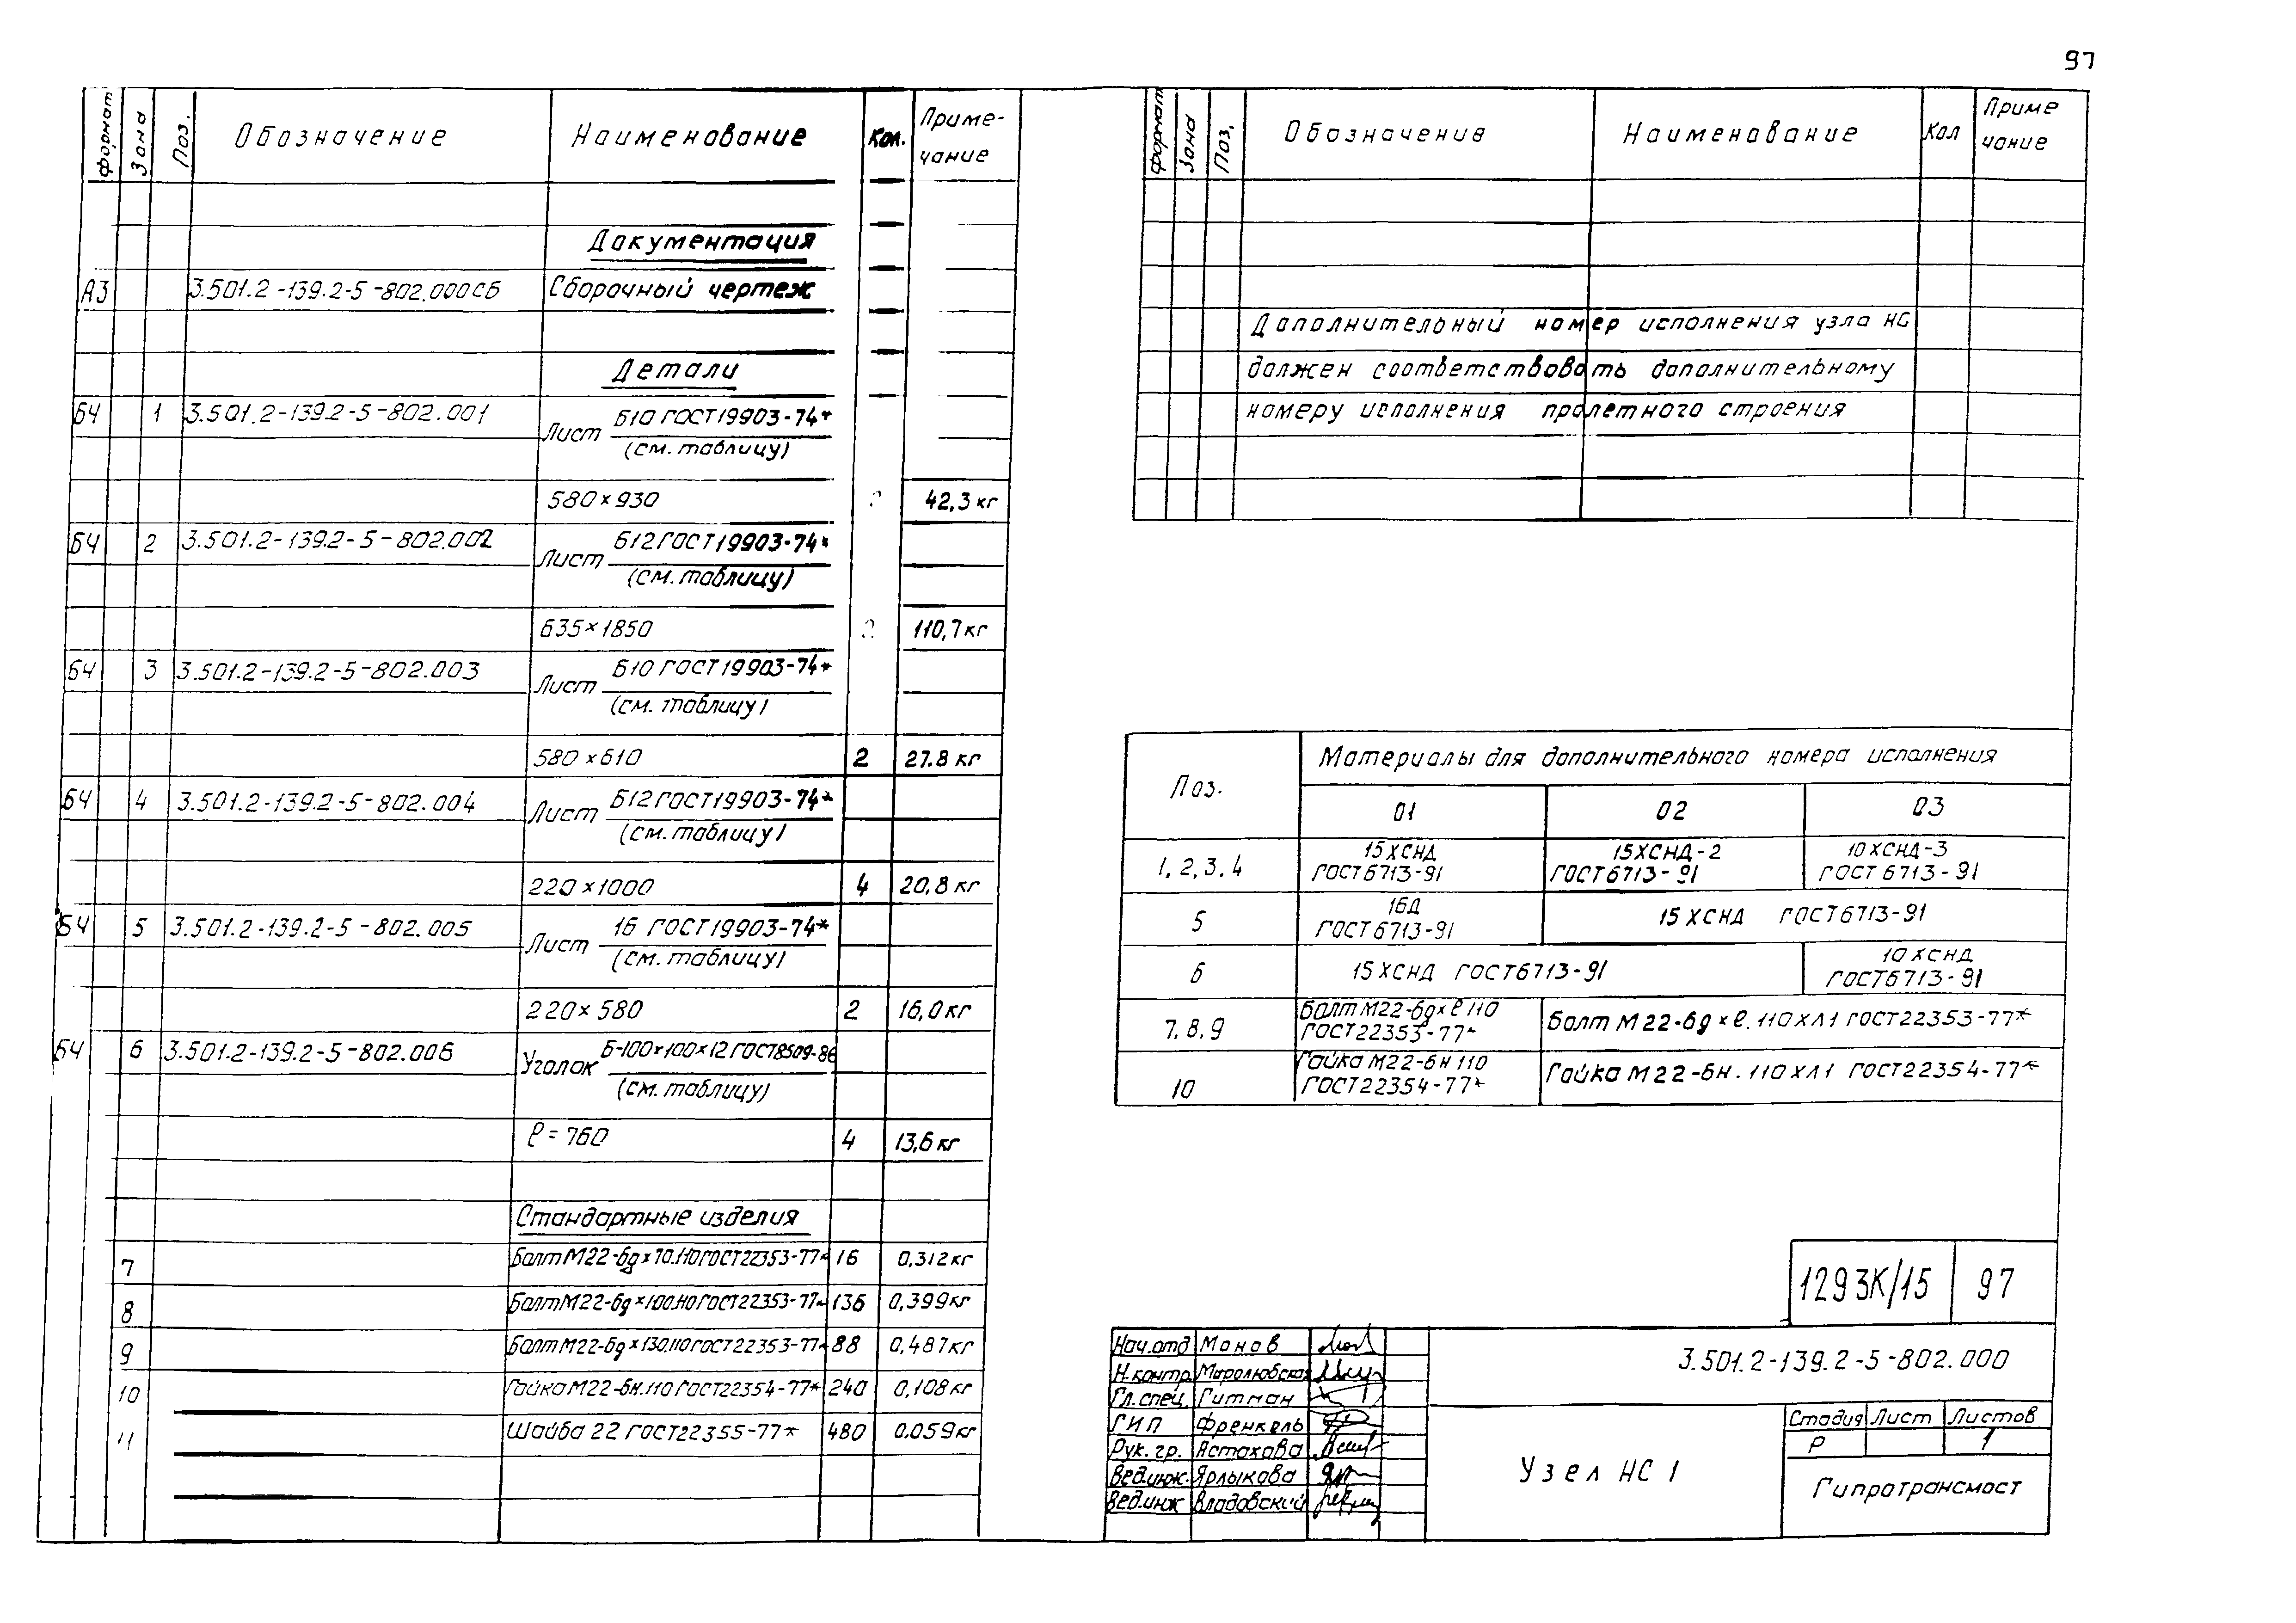 97
Формат Зона Поз. Обозначение Наименование Кол. Приме-
чание
Документация
А3 3.501.2-139.2-5-802.000СБ Сборочный чертеж
Детали
БЧ 1 3.501.2-139.2-5-802.001 Лист Б10 ГОСТ19903-74*
(см. таблицу)
580×930 42,3 кг
БЧ 2 3.501.2-139.2-5-802.002 Лист Б12 ГОСТ19903-74*
(см. таблицу)
635×1850 110,7 кг
БЧ 3 3.501.2-139.2-5-802.003 Лист Б10 ГОСТ19903-74*
(см. таблицу)
580×610 2 27.8 кг
БЧ 4 3.501.2-139.2-5-802.004 Лист Б12 ГОСТ19903-74*
(см. таблицу)
220×1000 4 20,8 кг
БЧ 5 3.501.2-139.2-5-802.005 Лист 16 ГОСТ19903-74*
(см. таблицу)
220×580 2 16,0 кг
БЧ 6 3.501.2-139.2-5-802.006 Уголок Б-100×100×12 ГОСТ8509-86
(см. таблицу)
ℓ=760 4 13,6 кг
Стандартные изделия
7 Болт М22-6g×70.110 ГОСТ22353-77* 16 0,312 кг
8 Болт М22-6g×100.110 ГОСТ22353-77* 136 0,399 кг
9 Болт М22-6g×130.110 ГОСТ22353-77* 88 0,487 кг
10 Гайка М22-6н.110 ГОСТ22354-77* 240 0,108 кг
11 Шайба 22 ГОСТ22355-77* 480 0.059 кг
Формат Зона Поз. Обозначение Наименование Кол Приме
чание
Дополнительный номер исполнения узла НС
должен соответствовать дополнительному
номеру исполнения пролетного строения
Поз. Материалы для дополнительного номера исполнения
01 02 03
1, 2, 3, 4 15ХСНД ГОСТ6713-91 15ХСНД-2 ГОСТ6713-91 10ХСНД-3 ГОСТ6713-91
5 16Д ГОСТ6713-91 15ХСНД ГОСТ6713-91
6 15ХСНД ГОСТ6713-91 10ХСНД ГОСТ6713-91
7, 8, 9 Болт М22-6g×ℓ 110 ГОСТ22353-77* Болт М22-6g×ℓ.110ХЛ1 ГОСТ22353-77*
10 Гайка М22-6н 110 ГОСТ22354-77* Гайка М22-6н.110ХЛ1 ГОСТ22354-77*
1293К/15 97
Нач.отд Монов
Н.контр. Миролюбская
Гл.спец. Гитман
ГИП Френкель
Рук. гр. Астахова
Вед.инж. Ярлыкова
Вед.инж Владовский
3.501.2-139.2-5-802.000
Узел НС 1
Стадия Лист Листов
Р 1
Гипротрансмост